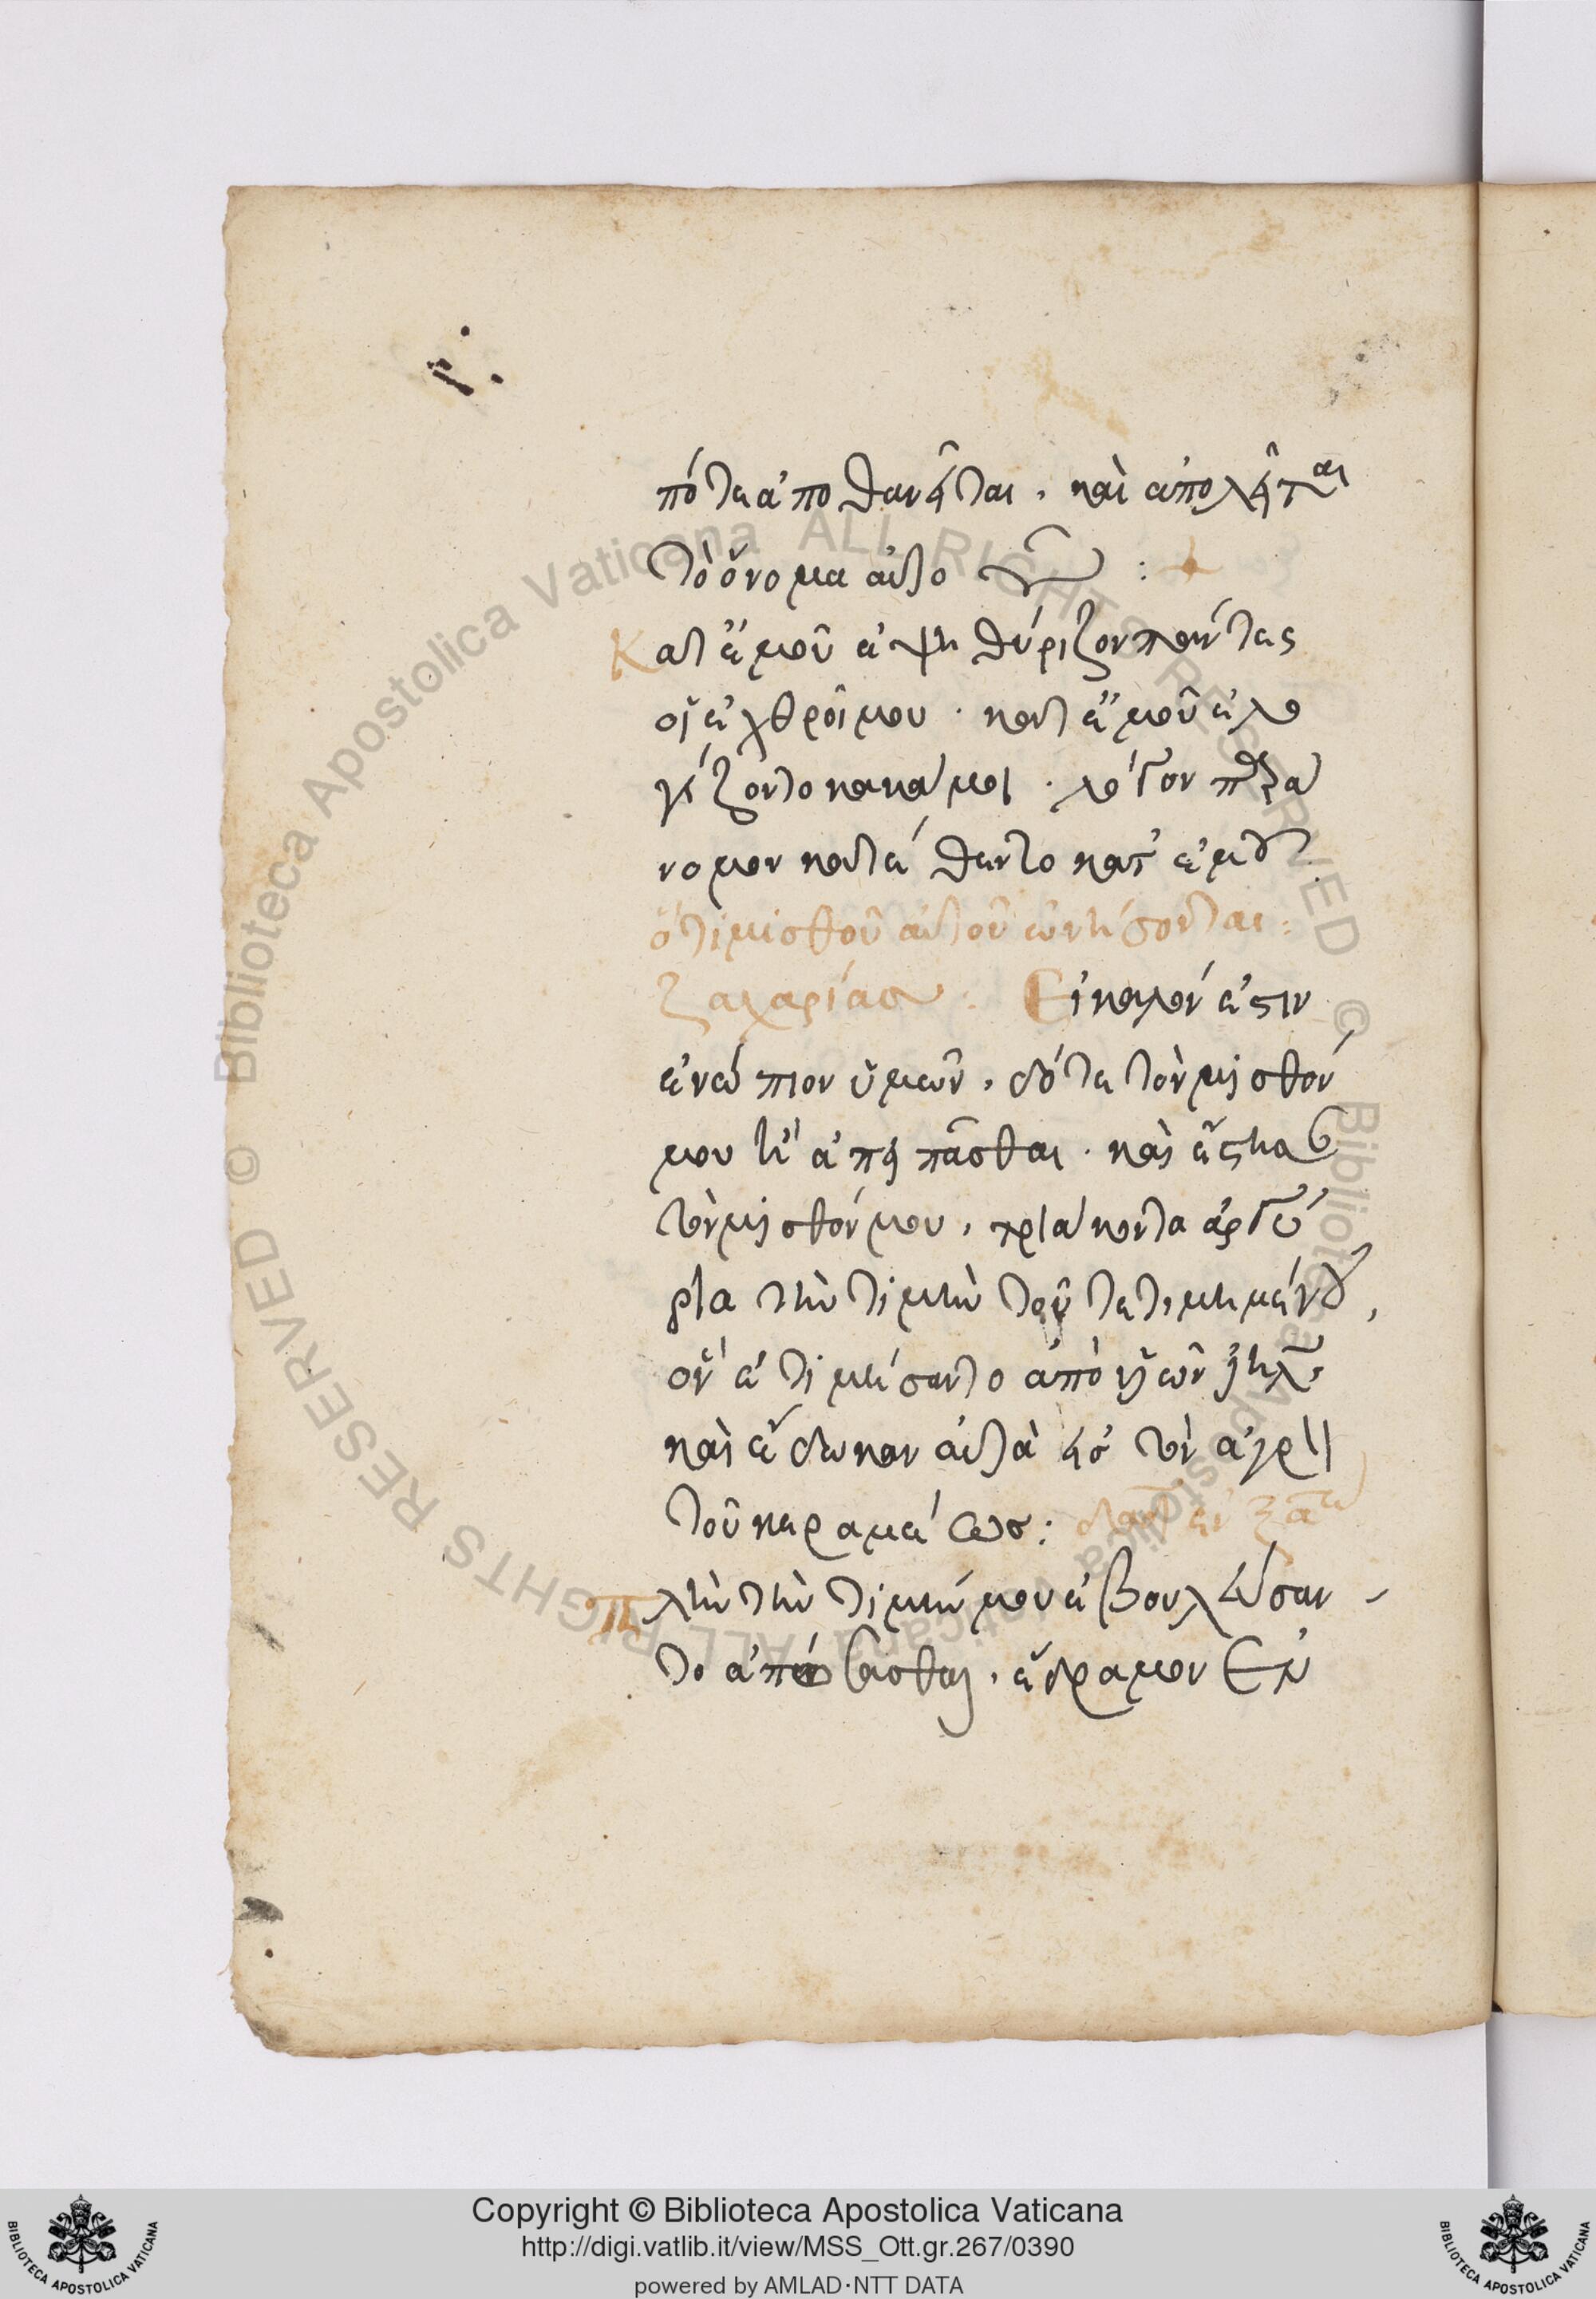 πότε ἀποθανεῖται, καὶ ἀπολεῖται
τὸ ὄνομα αὐτοῦ :
Κατ ἐμοῦ ἐψηθύριζον πάντες
οἱ ἐχθροί μου · κατ ἐμοῦ ἐλο
γίζοντο κακά μοι · λόγον παρά
νομον κατέθεντο κατ' ἐμοῦ
ὅτι μισθοῦ αὐτοῦ ὠνήσονται :
Ζαχαρίας : Εἰ καλόν ἐστιν
ἐνώπιον ὑμῶν, δότε τὸν μισθόν
μου ἢ ἀπείπασθαι · καὶ ἔστησαν
τὸν μισθόν μου, τριάκοντα ἀργύ
ρια τὴν τιμὴν τοῦ τετιμημένου,
ὃν ἐτιμήσαντο ἀπὸ υἱῶν ιηλ,
καὶ ἔδωκαν αὐτὰ εἰς τὸν ἀγρὸν
τοῦ κεραμέως :
πλὴν τὴν τιμήν μου ἐβουλεύσαν
το ἀπώσασθαι, ἔδραμον ἐν
Biblioteca Apostolica Vaticana ALL RIGHTS RESERVED ©
Biblioteca Apostolica Vaticana ALL RIGHTS RESERVED ©
Copyright © Biblioteca Apostolica Vaticana
http://digi.vatlib.it/view/MSS_Ott.gr.267/0390
powered by AMLAD·NTT DATA
BIBLIOTECA APOSTOLICA VATICANA
BIBLIOTECA APOSTOLICA VATICANA